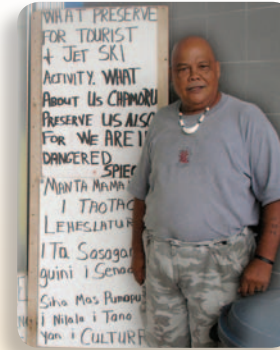 WHAT PRESERVE
FOR TOURIST
+ JET SKI
ACTIVITY. WHAT
ABOUT US CHAMORU
PRESERVE US ALSO
FOR WE ARE I
DANGERED
SPIEC
"MANTA MAMA
I TAOTAO
LEHESLATUR
ITa Sasagan
guini i Senad
Siha Mas Pumapu
i Nilala i Tano
yan i CULTURA